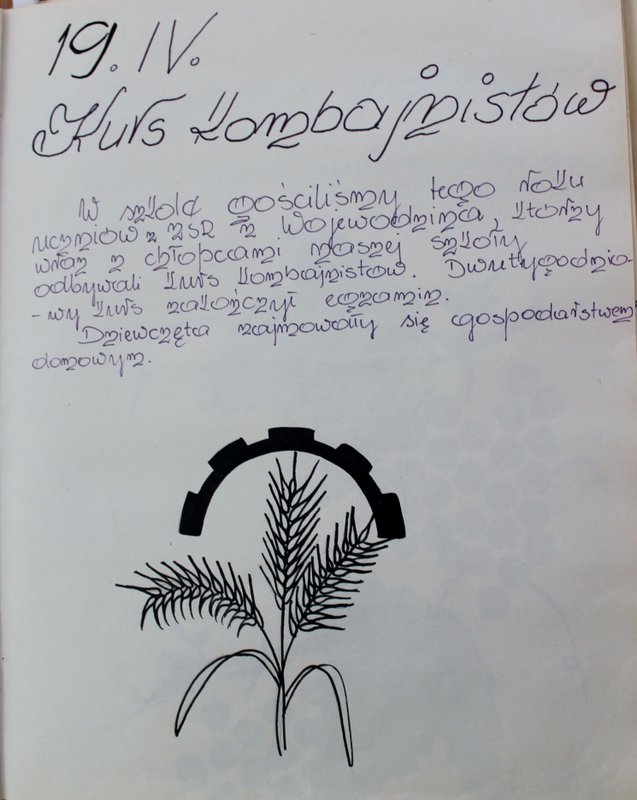 19. IV.
Kurs kombajnistów
W szkole gościliśmy tego roku
uczniów z ZSR z Wojewodzina, którzy
wraz z chłopcami naszej szkoły
odbywali kurs kombajnistów. Dwutygodnio-
-wy kurs zakończył egzamin.
Dziewczęta zajmowały się gospodarstwem
domowym.